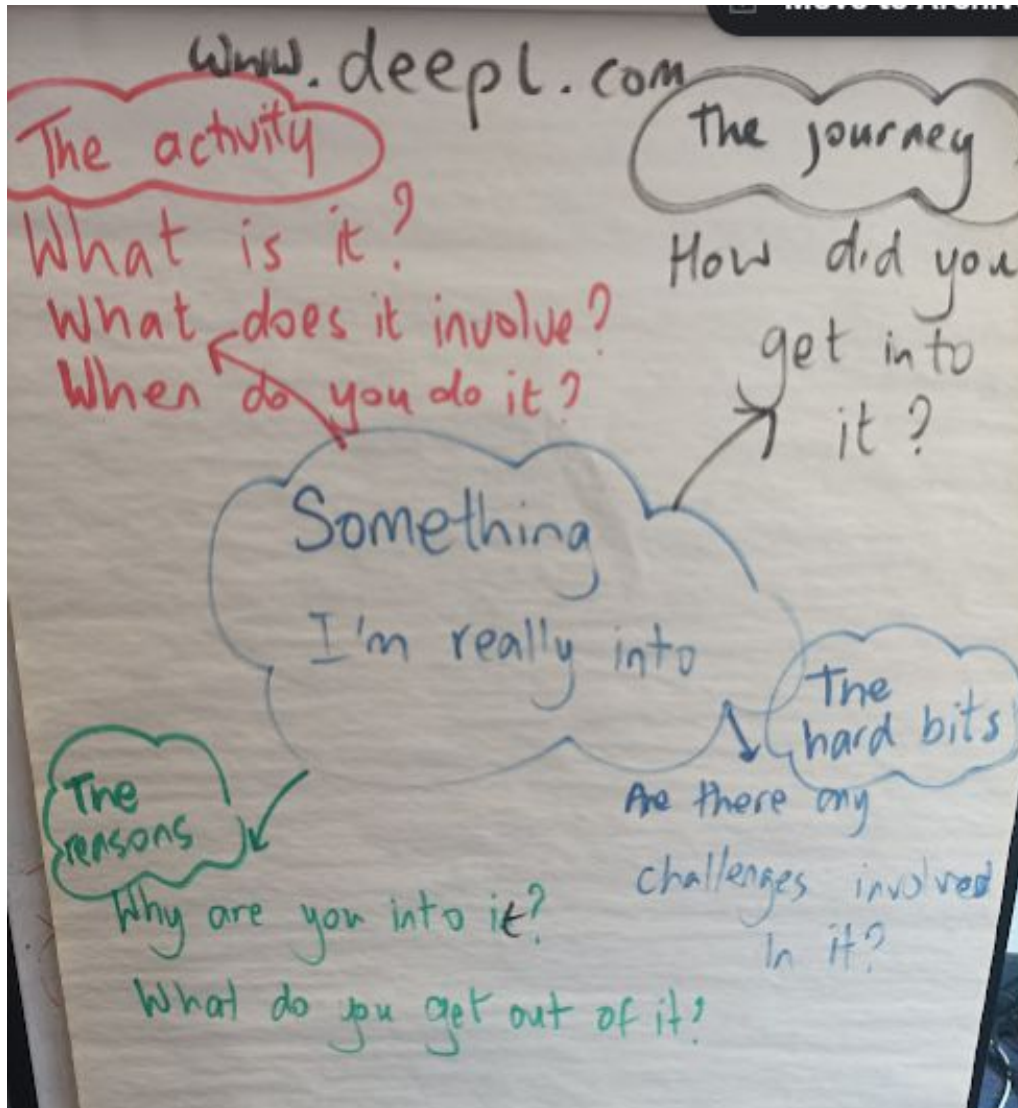 www.deepl.com
The activity
What is it?
What does it involve?
When do you do it?
The journey
How did you
get into
it?
Something
I'm really into
The
hard bits
Are there any
challenges involved
In it?
The
reasons
Why are you into it?
What do you get out of it?